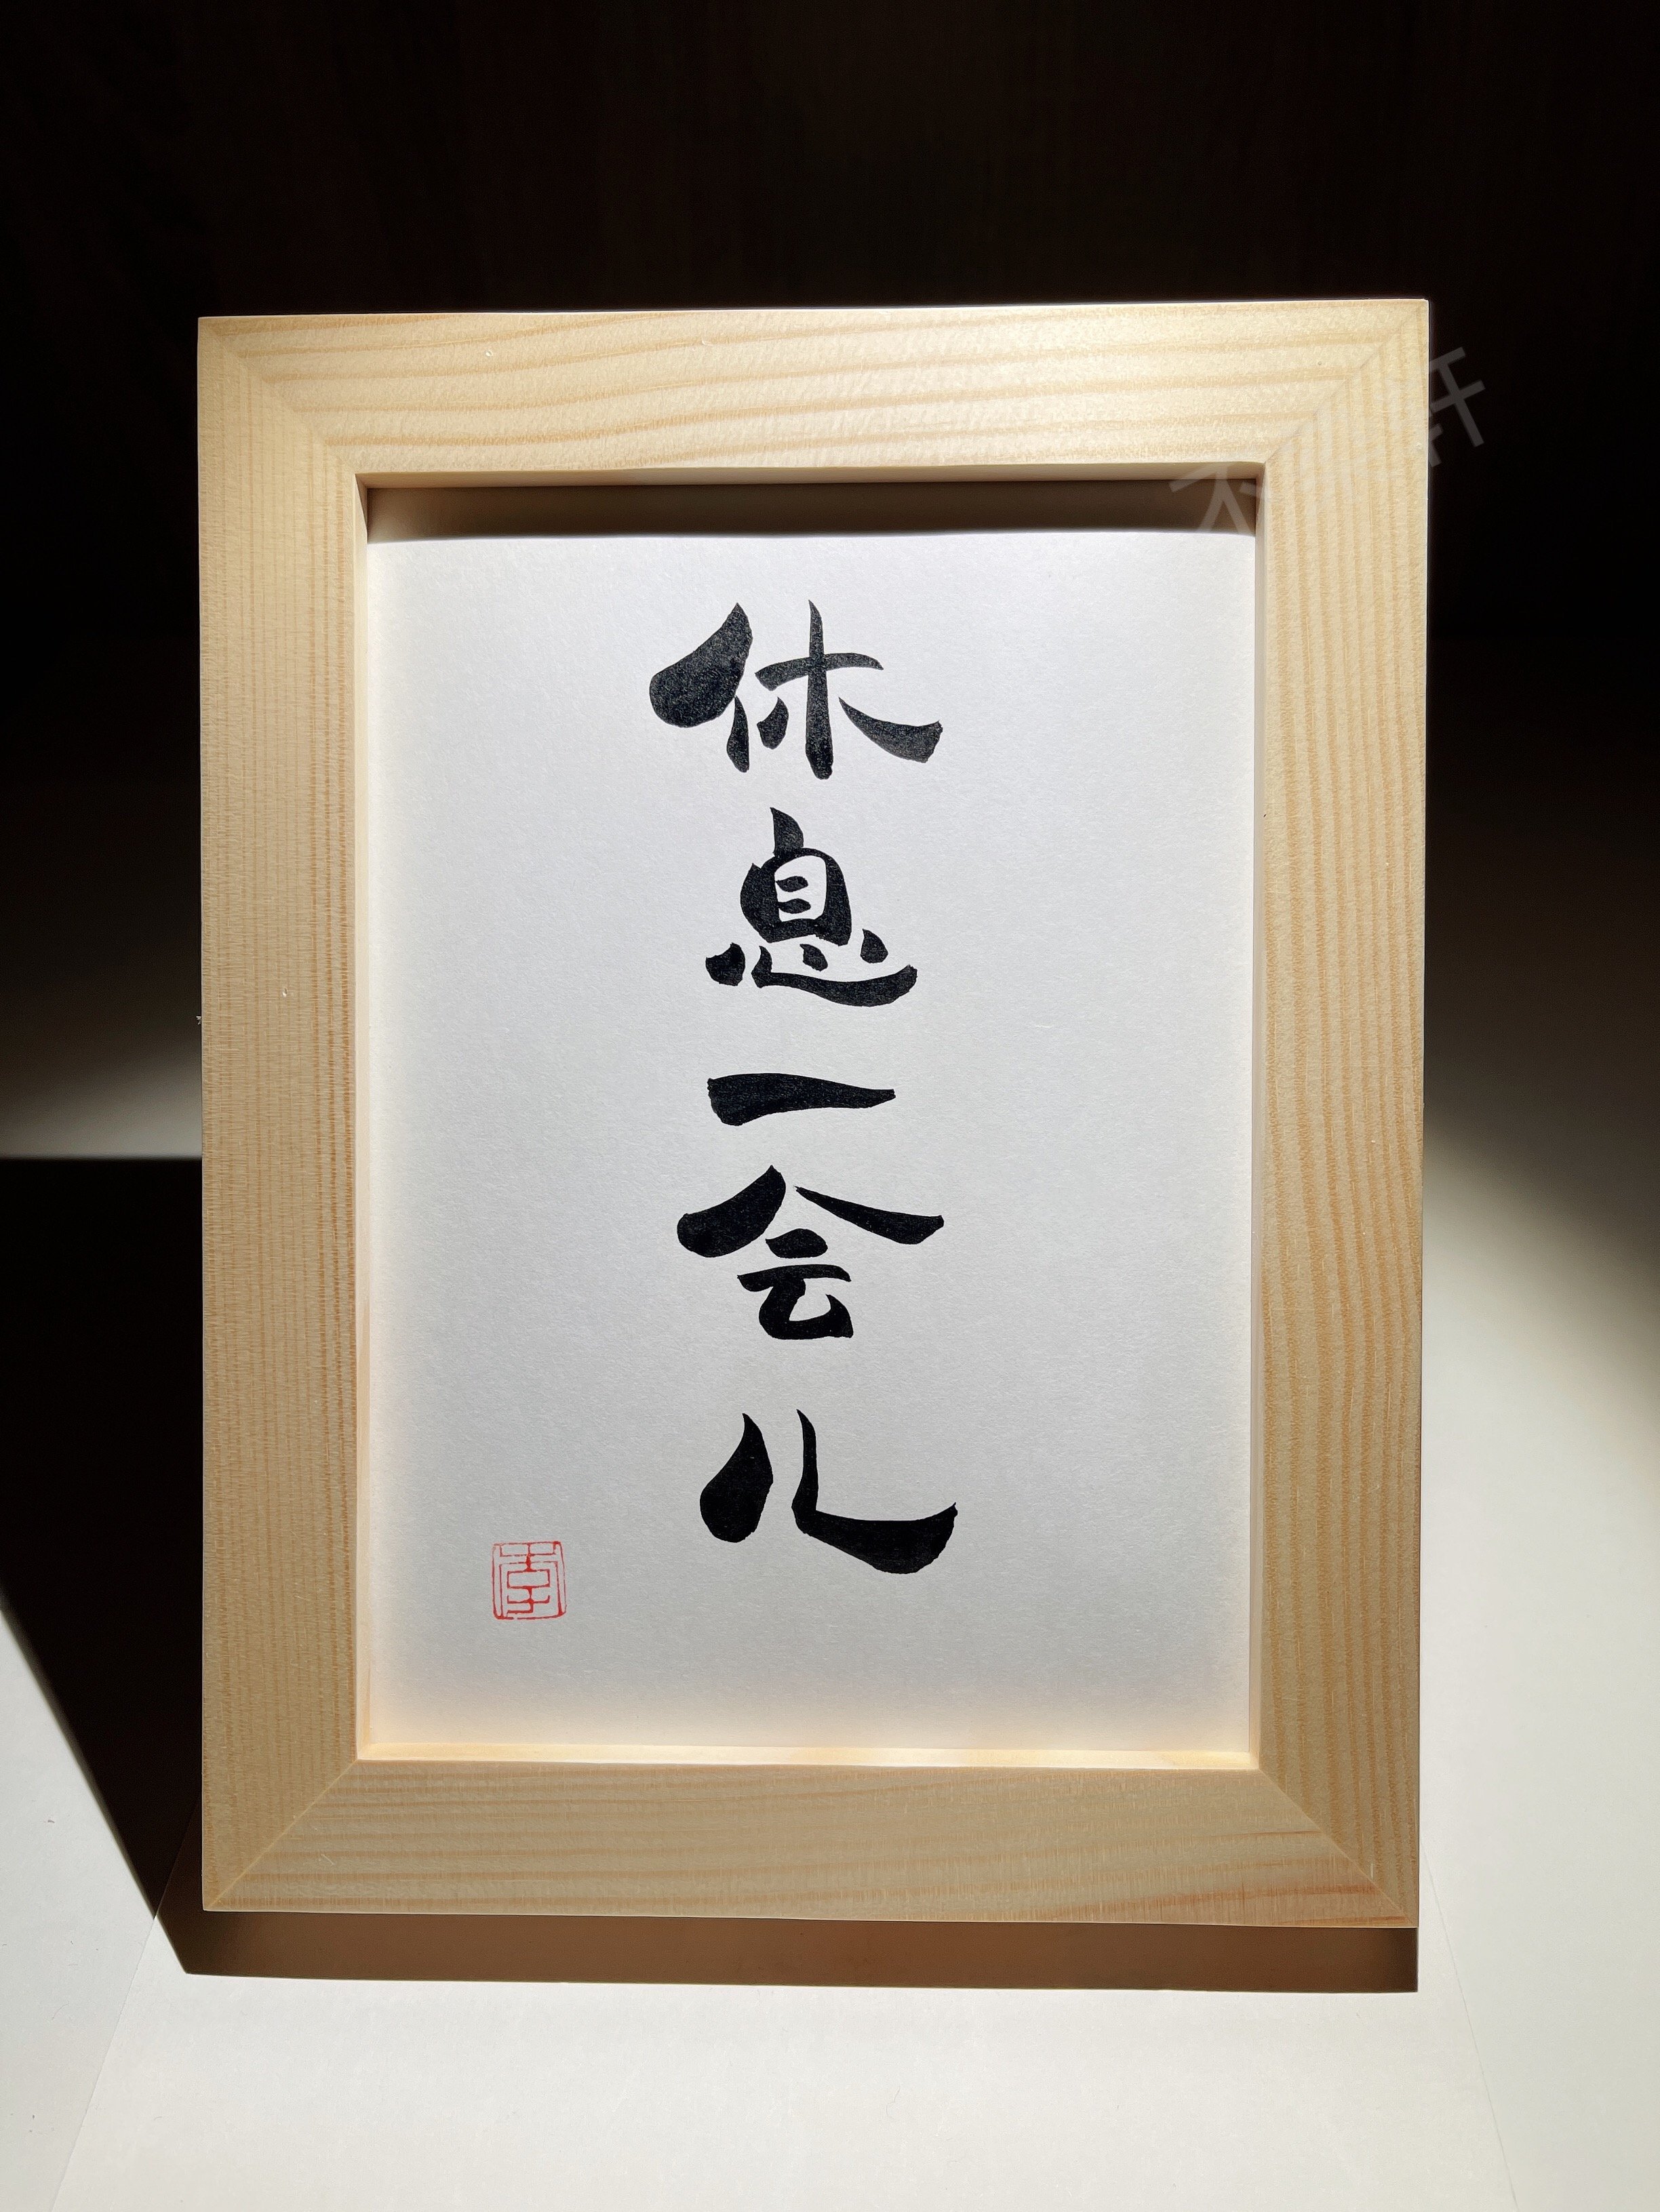 休息一会儿